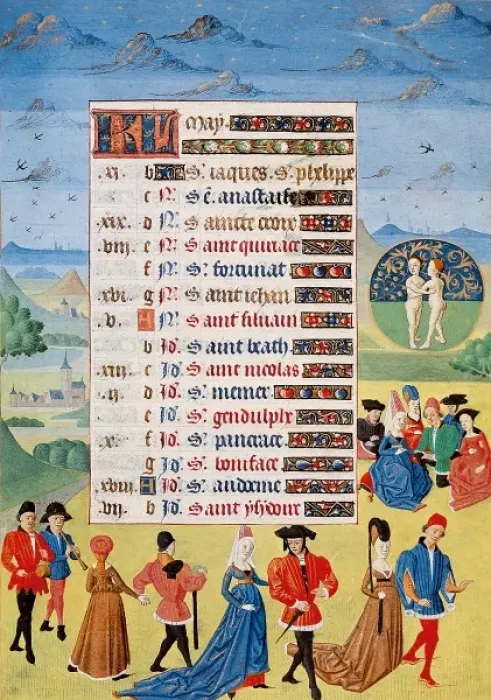 KL May.
.xi. b S. iaques. S. phelippe
c N. Sᵉ. anastaise
.xix. d N. Saincte croix
.viii. e N. Saint quiriace
f N. Sᵗ. fortunat
.xvi. g N. Saint iehan
.v. A N. Saint siluain
b Id. Saint beath
.xiii. c Id. Saint nicolas
.ii. d Id. Sᵗ. memer
e Id. Sᵗ. gendulphe
.x. f Id. Sᵗ. pancrace
g Id. Sᵗ. boniface
.xviii. A Id. Sᵗ.
.vii. b Id. Saint